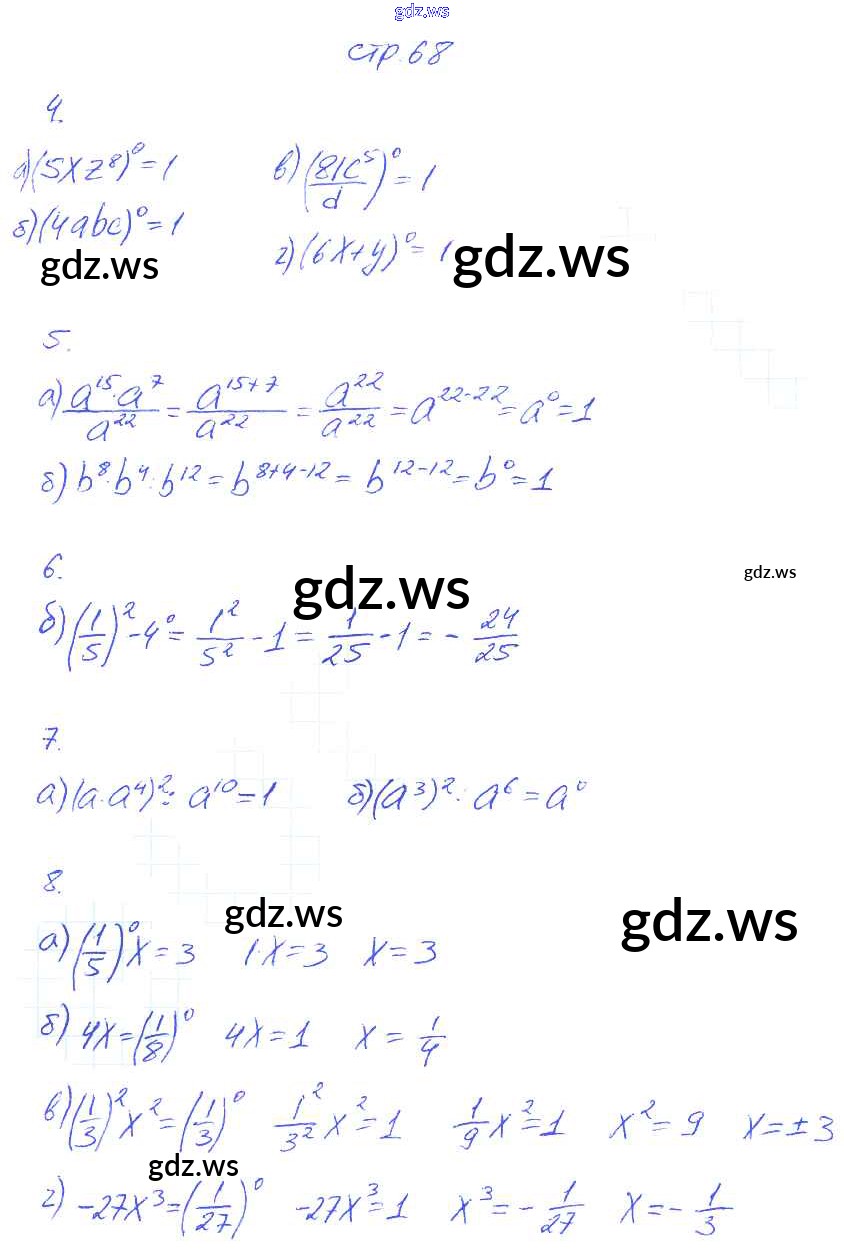 gdz.ws
стр. 68
4.
а) (5xz⁸)⁰ = 1 в) (81c⁵/d)⁰ = 1
б) (4abc)⁰ = 1 г) (6x+y)⁰ = 1
gdz.ws gdz.ws
5.
а) a¹⁵·a⁷/a²² = a¹⁵⁺⁷/a²² = a²²/a²² = a²²⁻²² = a⁰ = 1
б) b⁸·b⁴:b¹² = b⁸⁺⁴⁻¹² = b¹²⁻¹² = b⁰ = 1
6.
gdz.ws gdz.ws
б) (1/5)² - 4⁰ = 1²/5² - 1 = 1/25 - 1 = - 24/25
7.
а) (a·a⁴)² : a¹⁰ = 1 б) (a³)² : a⁶ = a⁰
8.
gdz.ws gdz.ws
а) (1/5)⁰ x = 3 1·x = 3 x = 3
б) 4x = (1/8)⁰ 4x = 1 x = 1/4
в) (1/3)² x² = (1/3)⁰ 1²/3² x² = 1 1/9 x² = 1 x² = 9 x = ± 3
gdz.ws
г) -27x³ = (1/27)⁰ -27x³ = 1 x³ = - 1/27 x = - 1/3